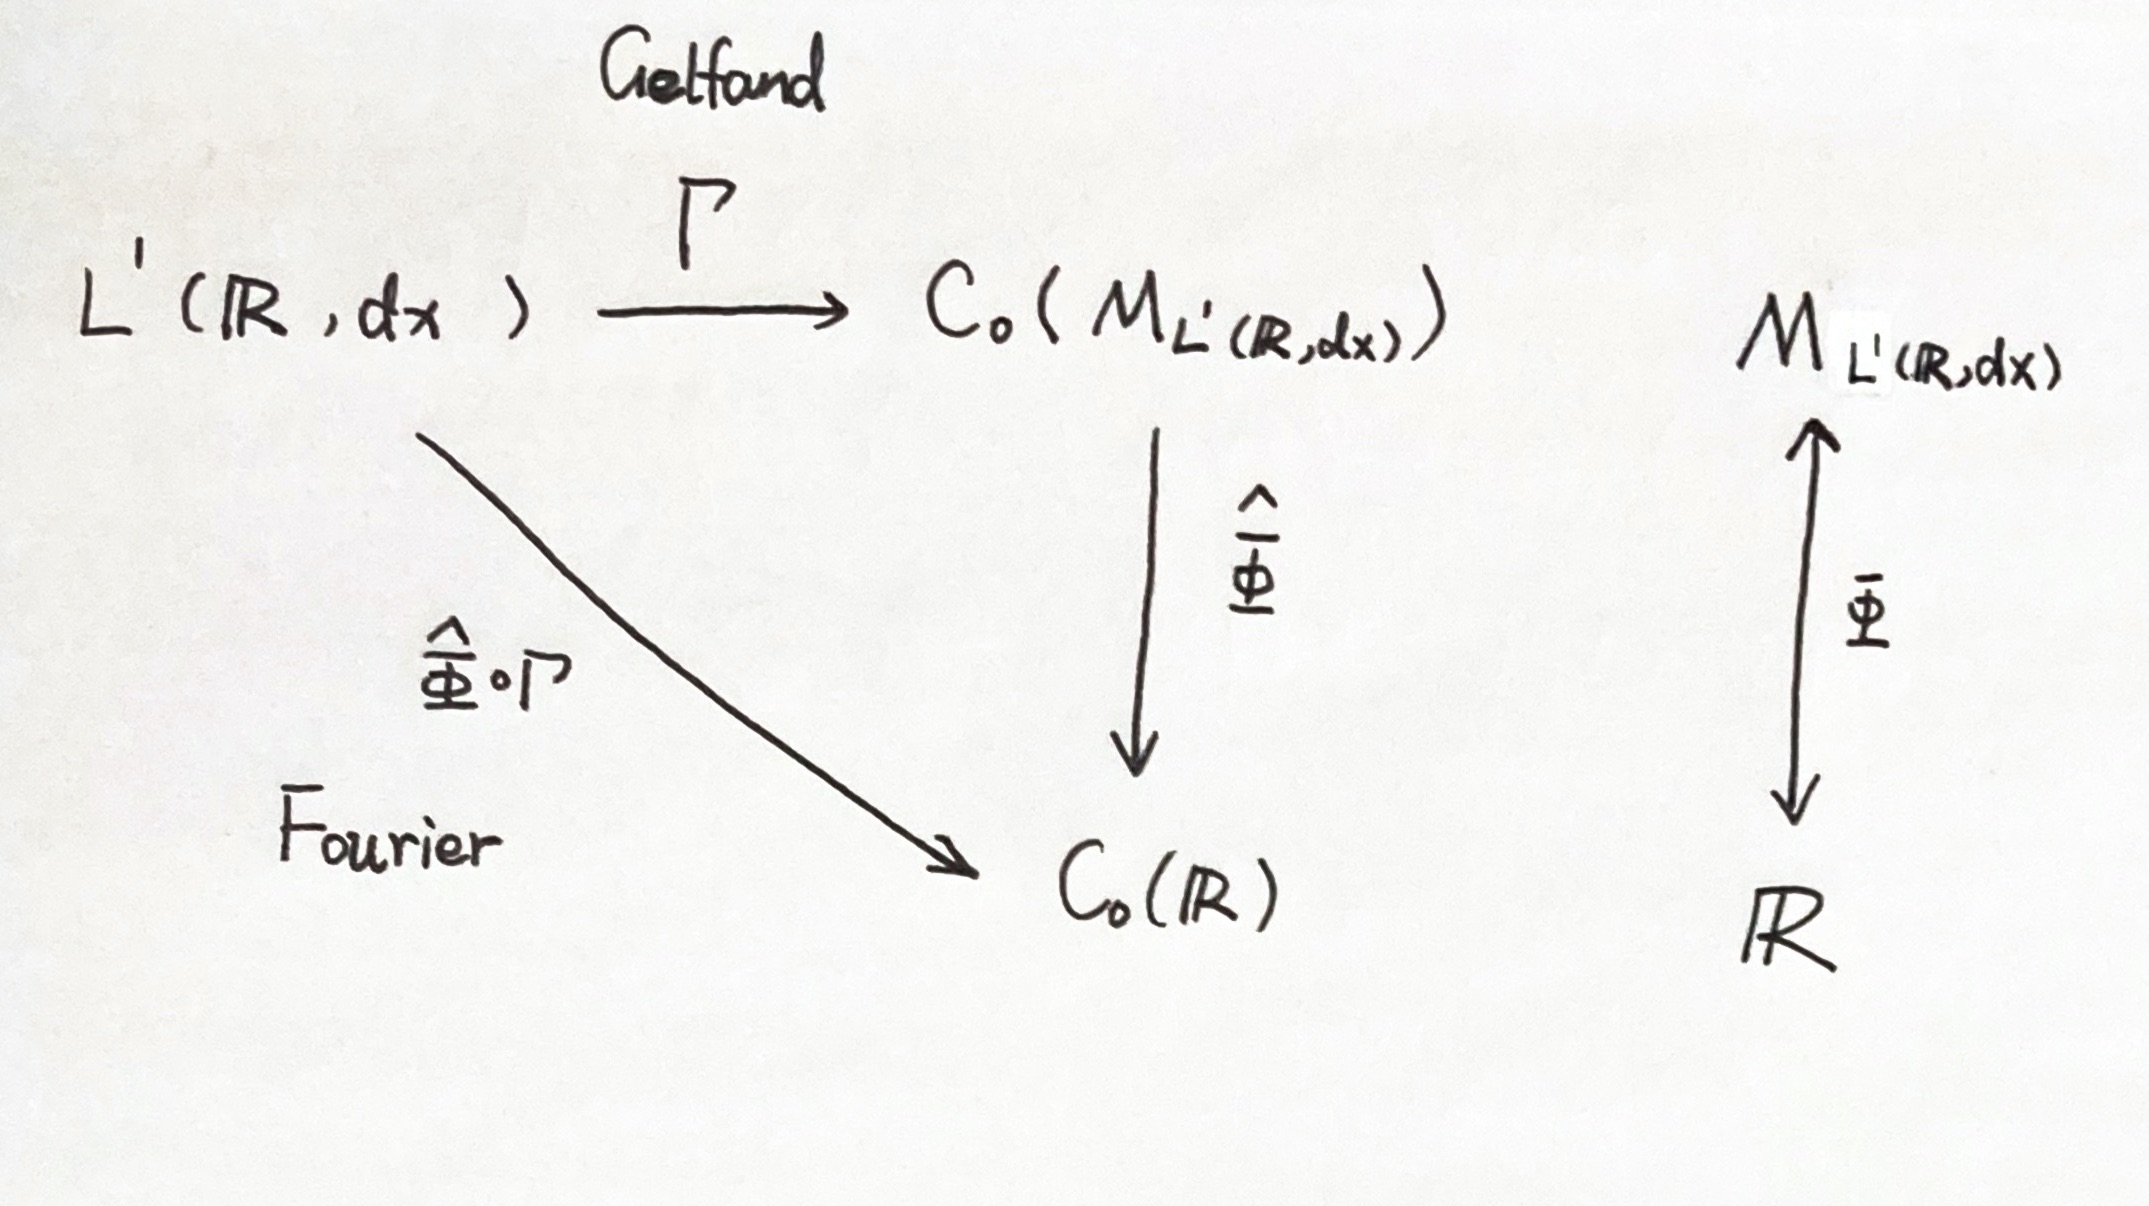 Gelfand
Γ
L¹(ℝ,dx) ⟶ C₀(M_{L¹(ℝ,dx)})
M_{L¹(ℝ,dx)}
Φ̂
Φ
Φ̂∘Γ
Fourier
C₀(ℝ)
ℝ